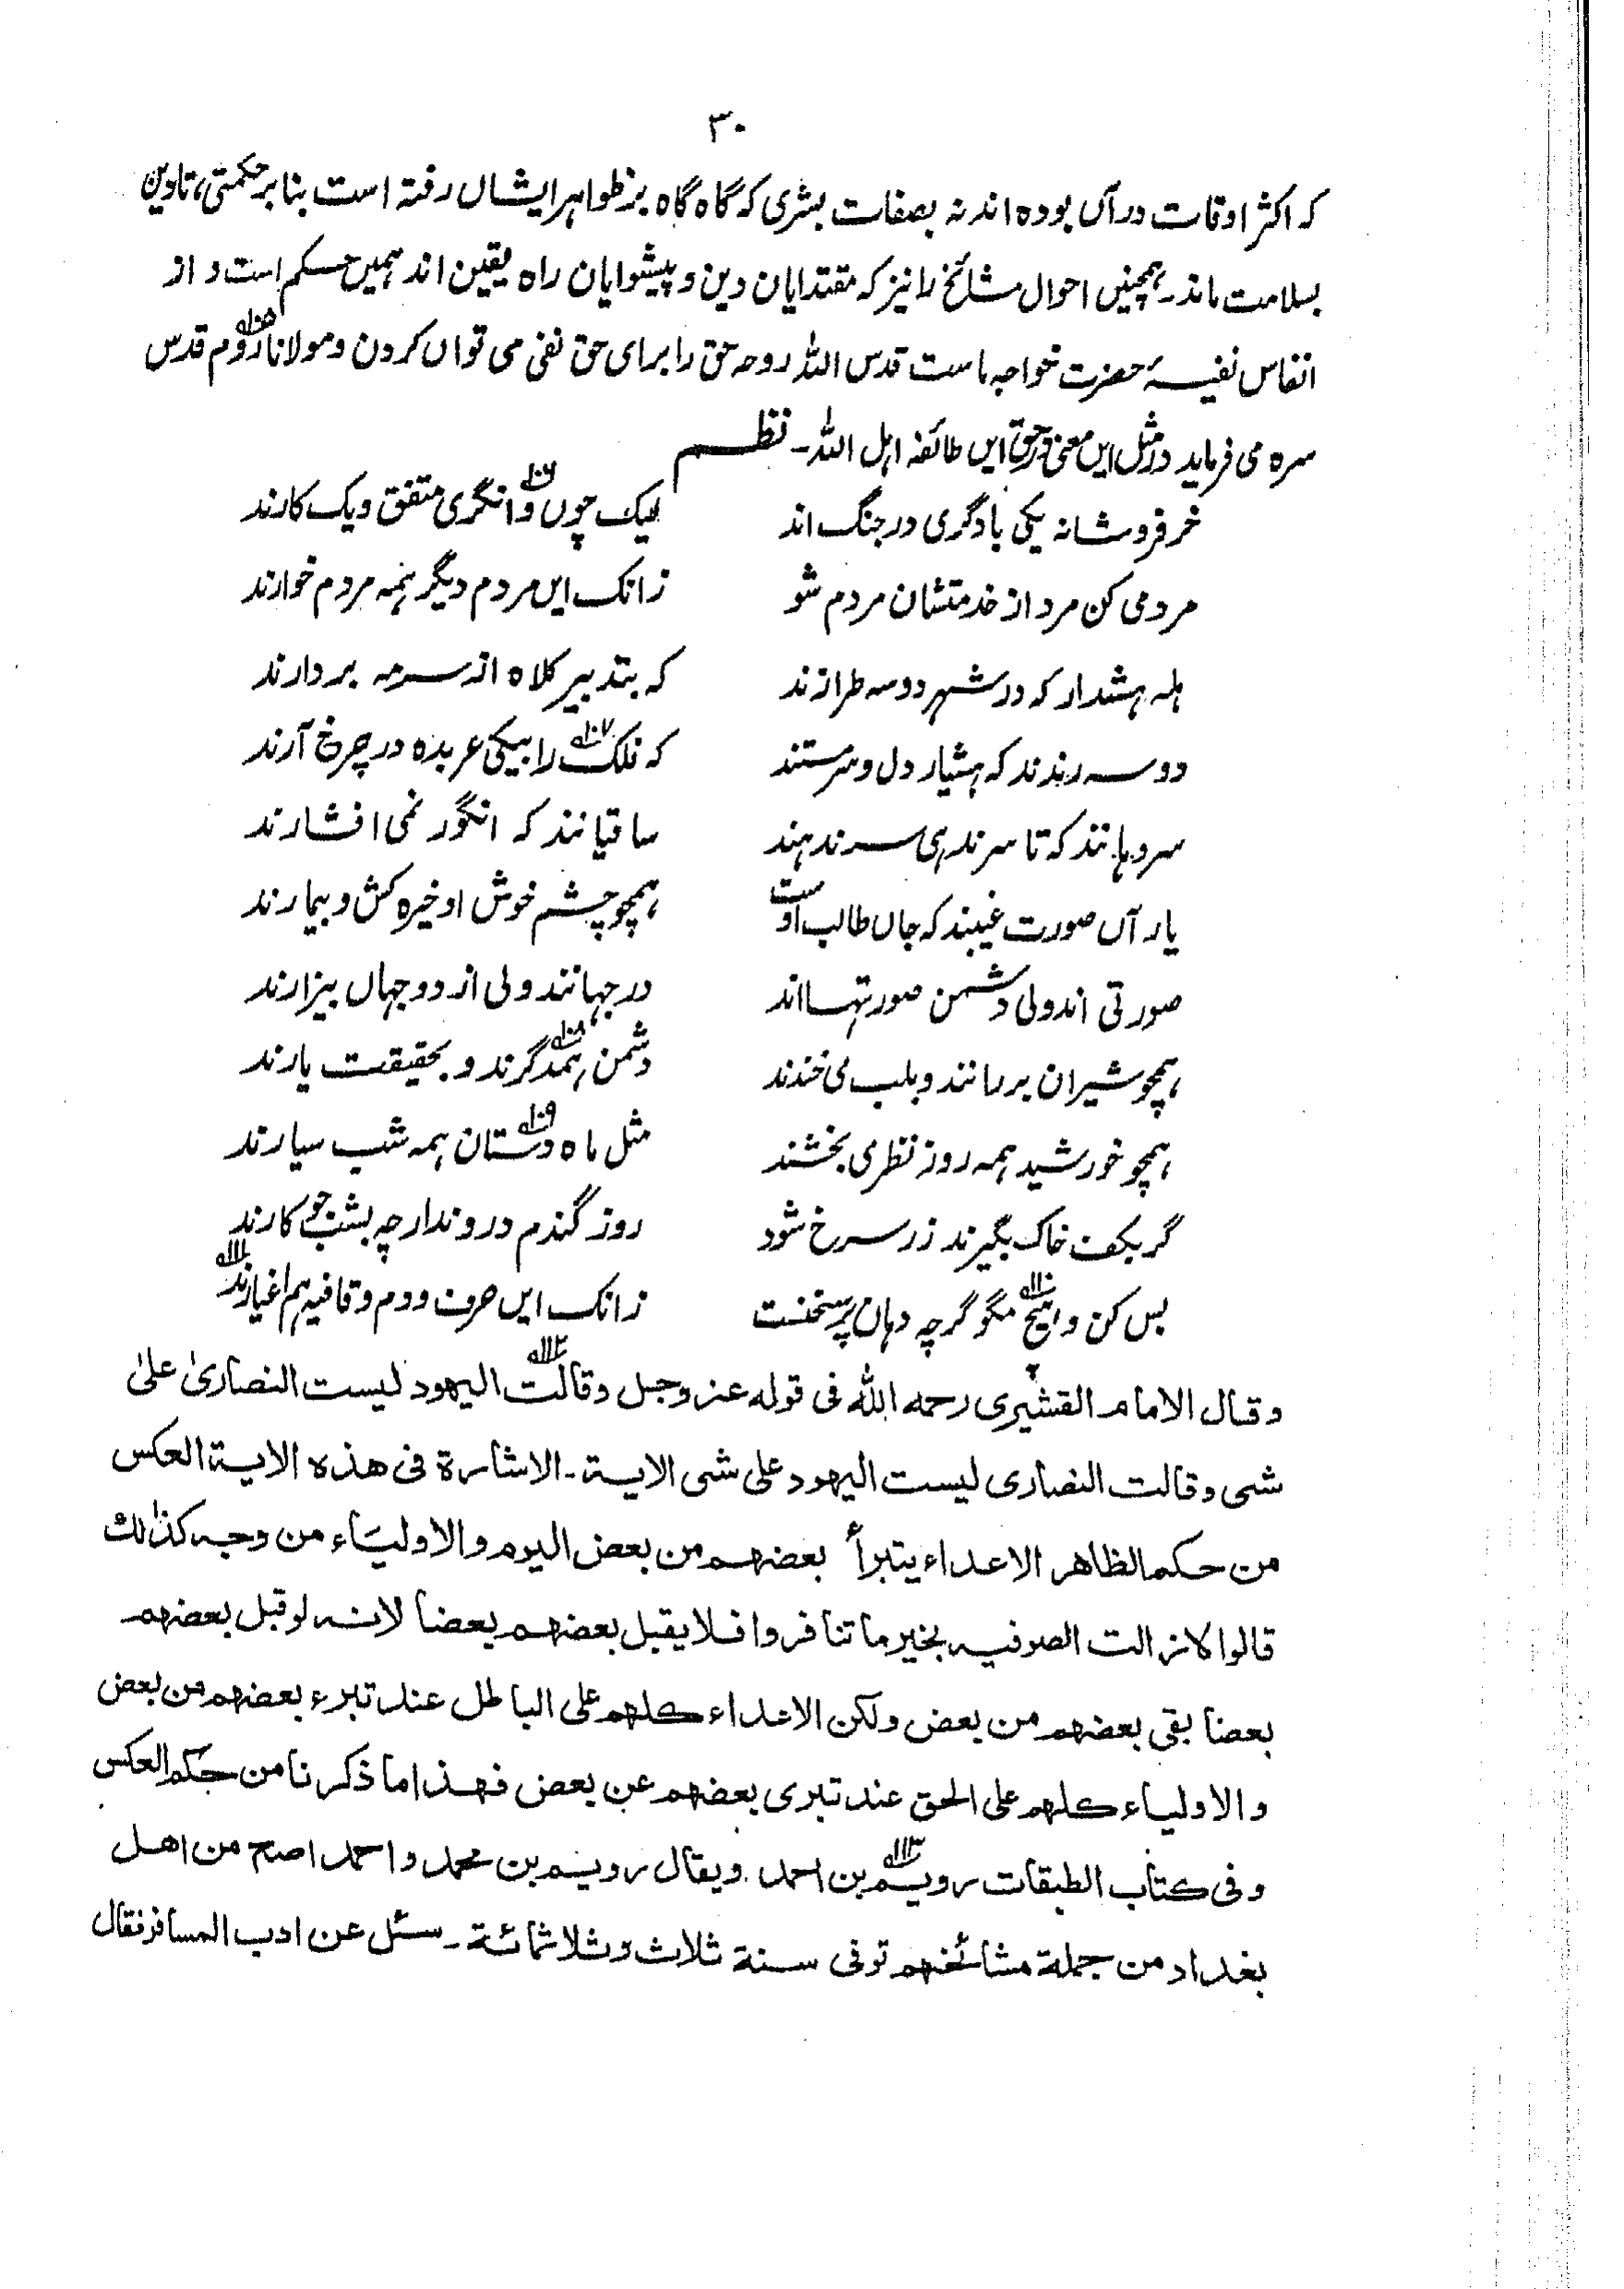 ۳۰
کہ اکثر اوقات در آں بوده اند نہ بصفات بشری کہ گاه گاه بر ظواہر ایشاں رفتہ است بنا بر حکمتی، تا دین
بسلامت ماند۔ ہمچنیں احوال مشائخ را نیز کہ مقتدایان دین و پیشوایان راه یقین اند ہمیں حکم است و از
انفاس نفیسۂ حضرت خواجہ ماست قدس اللہ روحہ حق را برای حق نفی می تواں کردن و مولانا روم ۱۰۵ قدس
سره می فرماید در مثل ایں معنی در حق ایں طائفہ اہل اللہ۔ نظم
خر فروشانہ یکی با دگری در جنگ اند لیک چوں وا نگری ۱۰۶ متفق و یک کارند
مردمی کن مرو از خدمتشان مردم شو زانک ایں مردم دیگر ہمہ مردم خوارند
ہلہ ہشدار کہ در شہر دو سہ طرارند کہ بتدبیر کلاه از سر مہ بردارند
دو سہ رندند کہ ہشیار دل و سرمستند کہ فلک ۱۰۷ را بیکی عربده در چرخ آرند
سردہانند کہ تا سر ندہی سر ندہند ساقیانند کہ انگور نمی افشارند
یار آں صورت غیبند کہ جاں طالب اوست ہمچو چشم خوش او خیره کش و بیمارند
صورتی اند ولی دشمن صورتہا اند در جہانند ولی از دو جہاں بیزارند
ہمچو شیران بدرانند و بلب می خندند دشمن ہمدگرند ۱۰۸ و بحقیقت یارند
ہمچو خورشید ہمہ روز نظر می بخشند مثل ماه و ستان ۱۰۹ ہمہ شب سیارند
گر بکف خاک بگیرند زر سرخ شود روز گندم دروند ار چہ بشب جو کارند
بس کن و ہیچ ۱۱۰ مگو گر چہ دہان پر سخنست زانک ایں حرف و دم و قافیہ ہم اغیارند ۱۱۱
وقال الامام القشیری رحمہ اللہ فی قولہ عز وجل وقالت ۱۱۲ الیہود لیست النصاریٰ علیٰ
شی وقالت النصاری لیست الیہود علی شی الایة۔ الاشارة فی ھذه الایة العکس
من حکم الظاھر الاعداء یتبرأ بعضھم من بعض الیوم والاولیاء من وجہ کذالك
قالوا لا زالت الصوفیہ بخیر ما تنافروا فلا یقبل بعضھم بعضا لانہ لو قبل بعضھم
بعضا بقی بعضھم من بعض ولکن الاعداء کلھم علی الباطل عند تبرء بعضھم من بعض
والاولیاء کلھم علی الحق عند تبری بعضھم عن بعض فھذا ما ذکرنا من حکم العکس
وفی کتاب الطبقات رویم ۱۱۳ بن احمد ویقال رویم بن محمد واحمد اصح من اھل
بغداد من جملة مشائخھم توفی سنة ثلاث وثلاثمائة۔ سئل عن ادب المسافر فقال